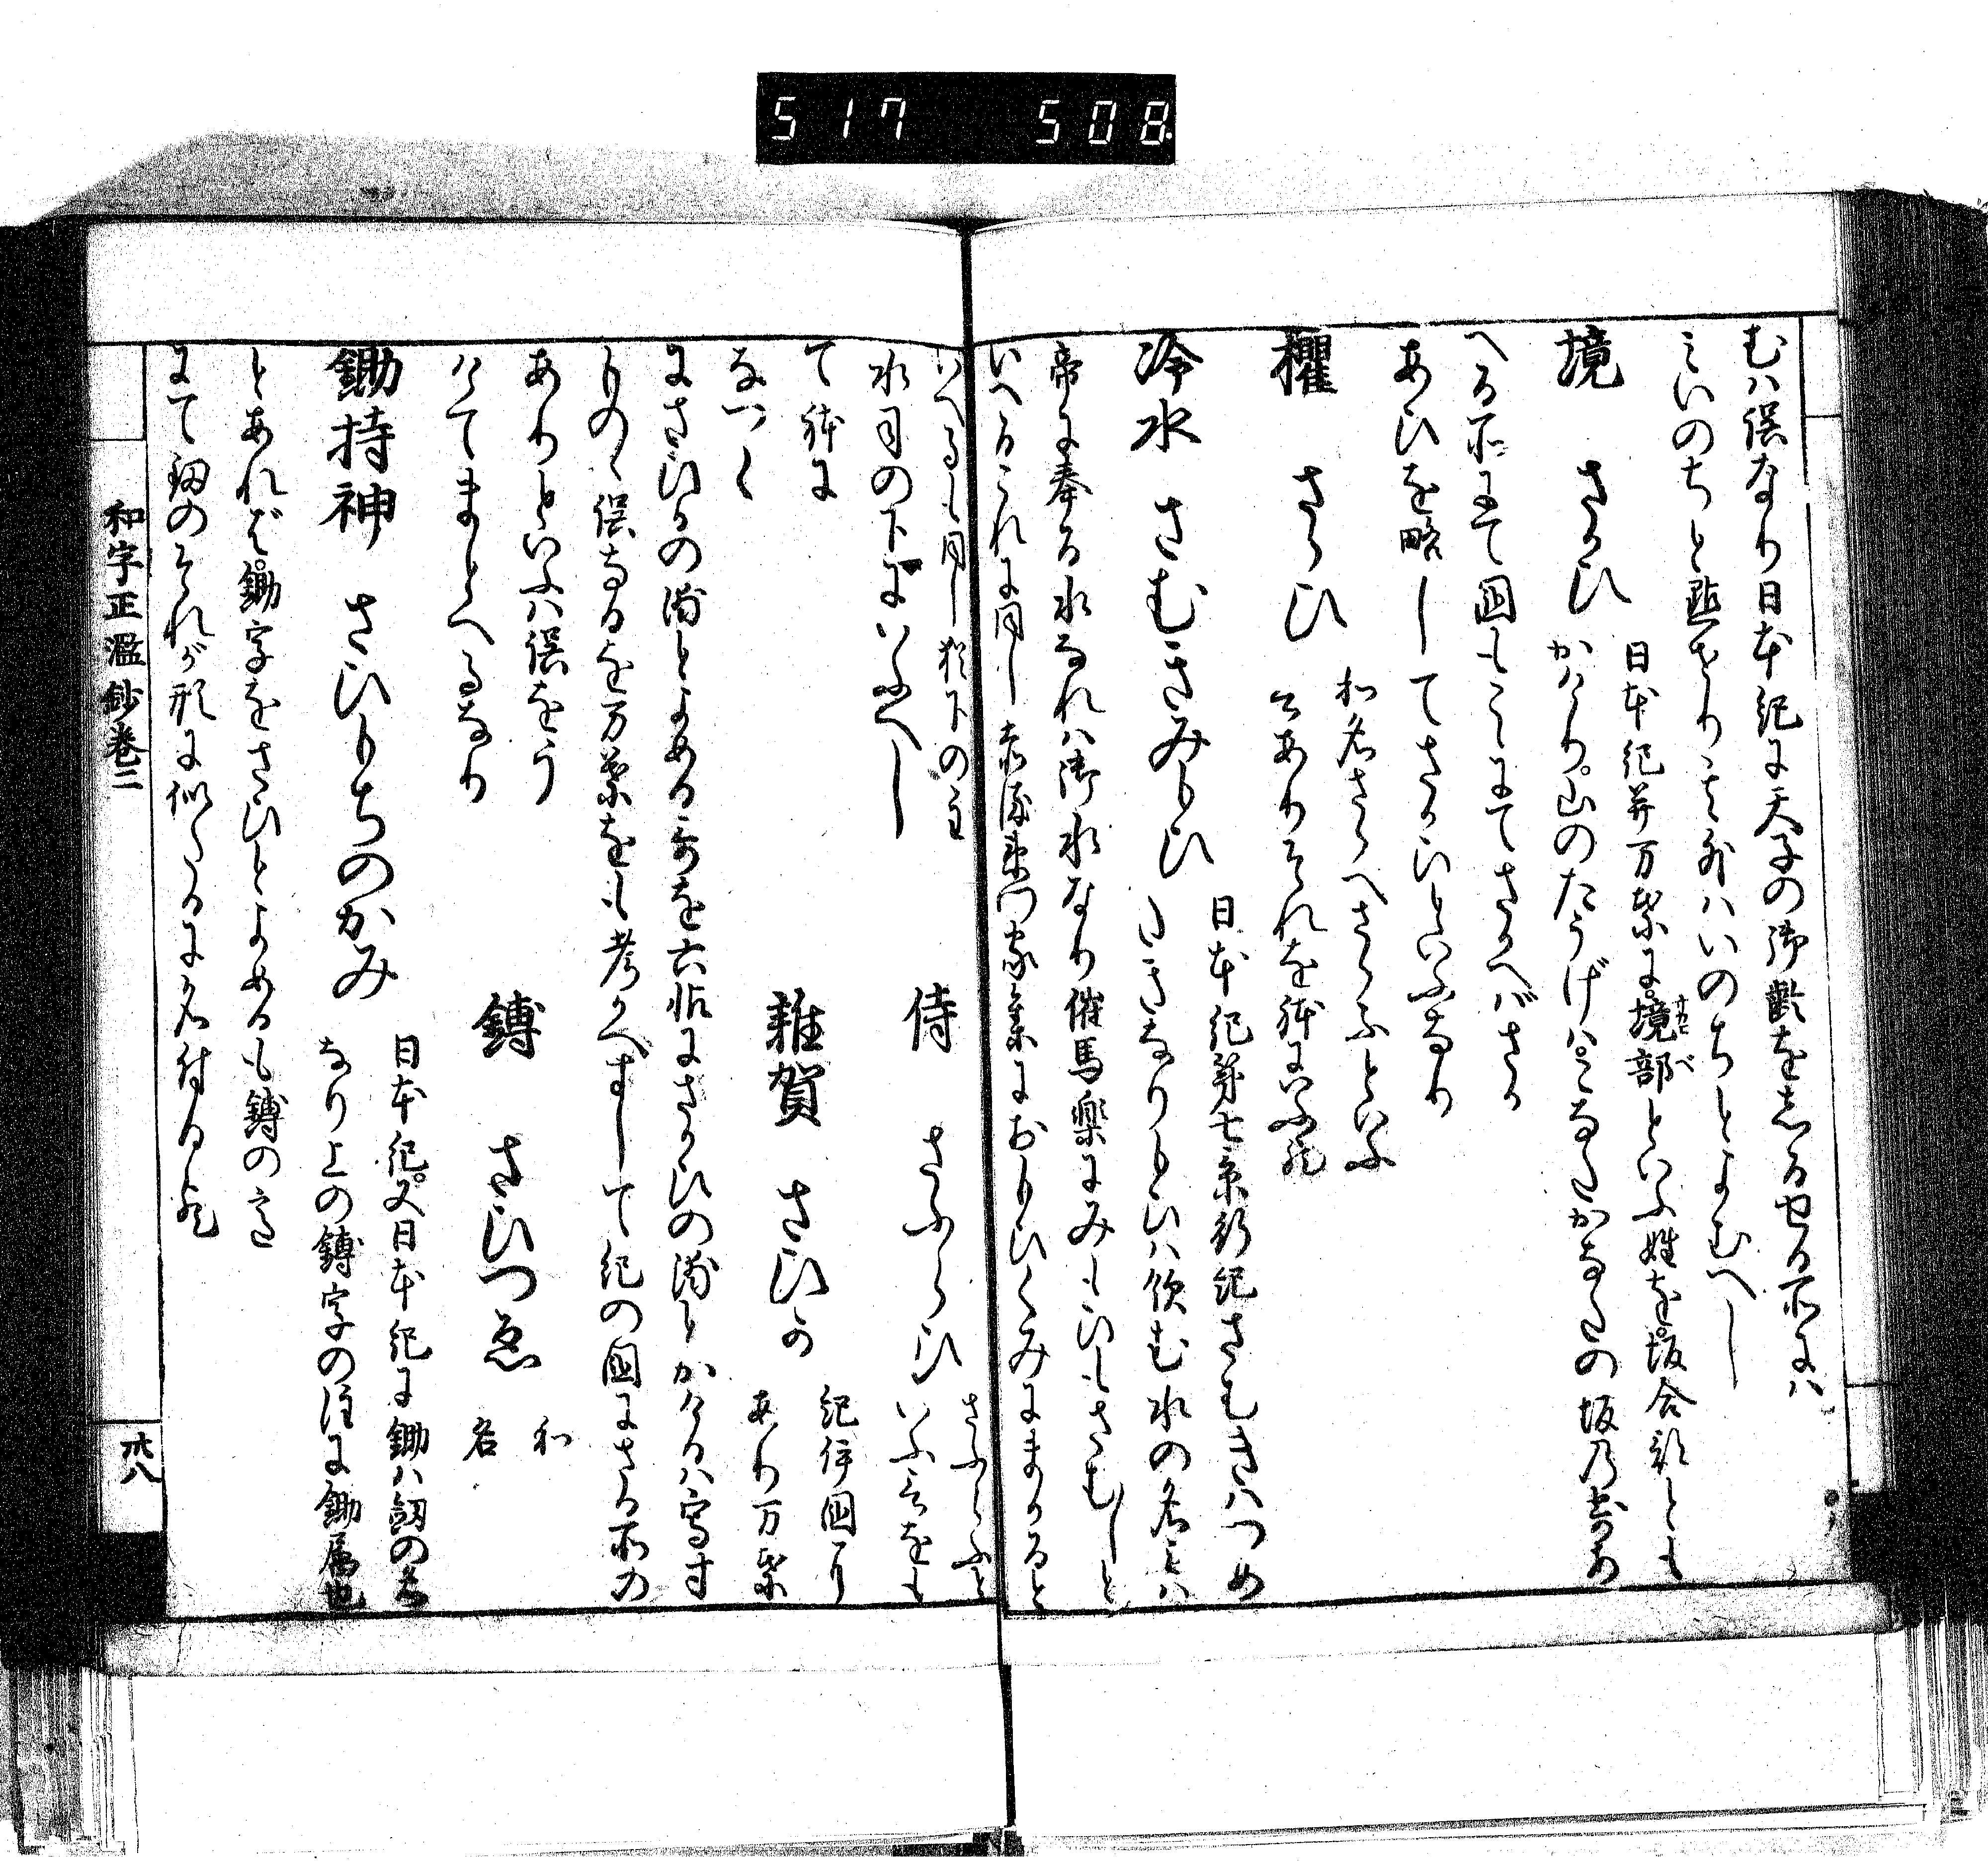 517 508
むハ誤なり日本紀に天子の御齢をしるせる所にハ
みいのちと點せり其外ハいのちとよむへし
境 さかひ 日本紀并万葉に境部といふ姓を坂合部とも
サカヒベ
かけり山のたうげハこなたかなたの坂の
へる所にて国もこゝにてさかへバさか
あひを略してさかひといふなり
欋 さらひ 和名さらへさらふといふ
それを体にいふ
冷水 さむきみもひ 日本紀第七景行紀さむきハつめ
たきなりもひハ飲む水の名みハ
帝に奉る水なれハ御水なり催馬楽にみもひもさむしと
いへるこれに同し赤染衛門家集におりひくみにまかると
いへるも同し
水司の下にいふへし
侍 さふらひ さふらふと
いふ言をも
て体に
なつく
雑賀 さひか 紀伊国に
あり万葉
にさひかの浦とよめる哥を六帖にさかひの浦とかけるハ寫す
ものゝ誤なるを万葉をも考かへすして紀の国にさる所の
ありといふハ誤をう
けてまとへるなり
鎛 さひつゑ 和
名
鋤持神 さひもちのかみ 日本紀又日本紀に鋤ハ釼の名
なり上の鎛字の注に鋤属也
とあれば鋤字をさひとよめるも鎛の
にて釼のそれが形に似たるに名付る歟
和字正濫鈔巻二
廿八